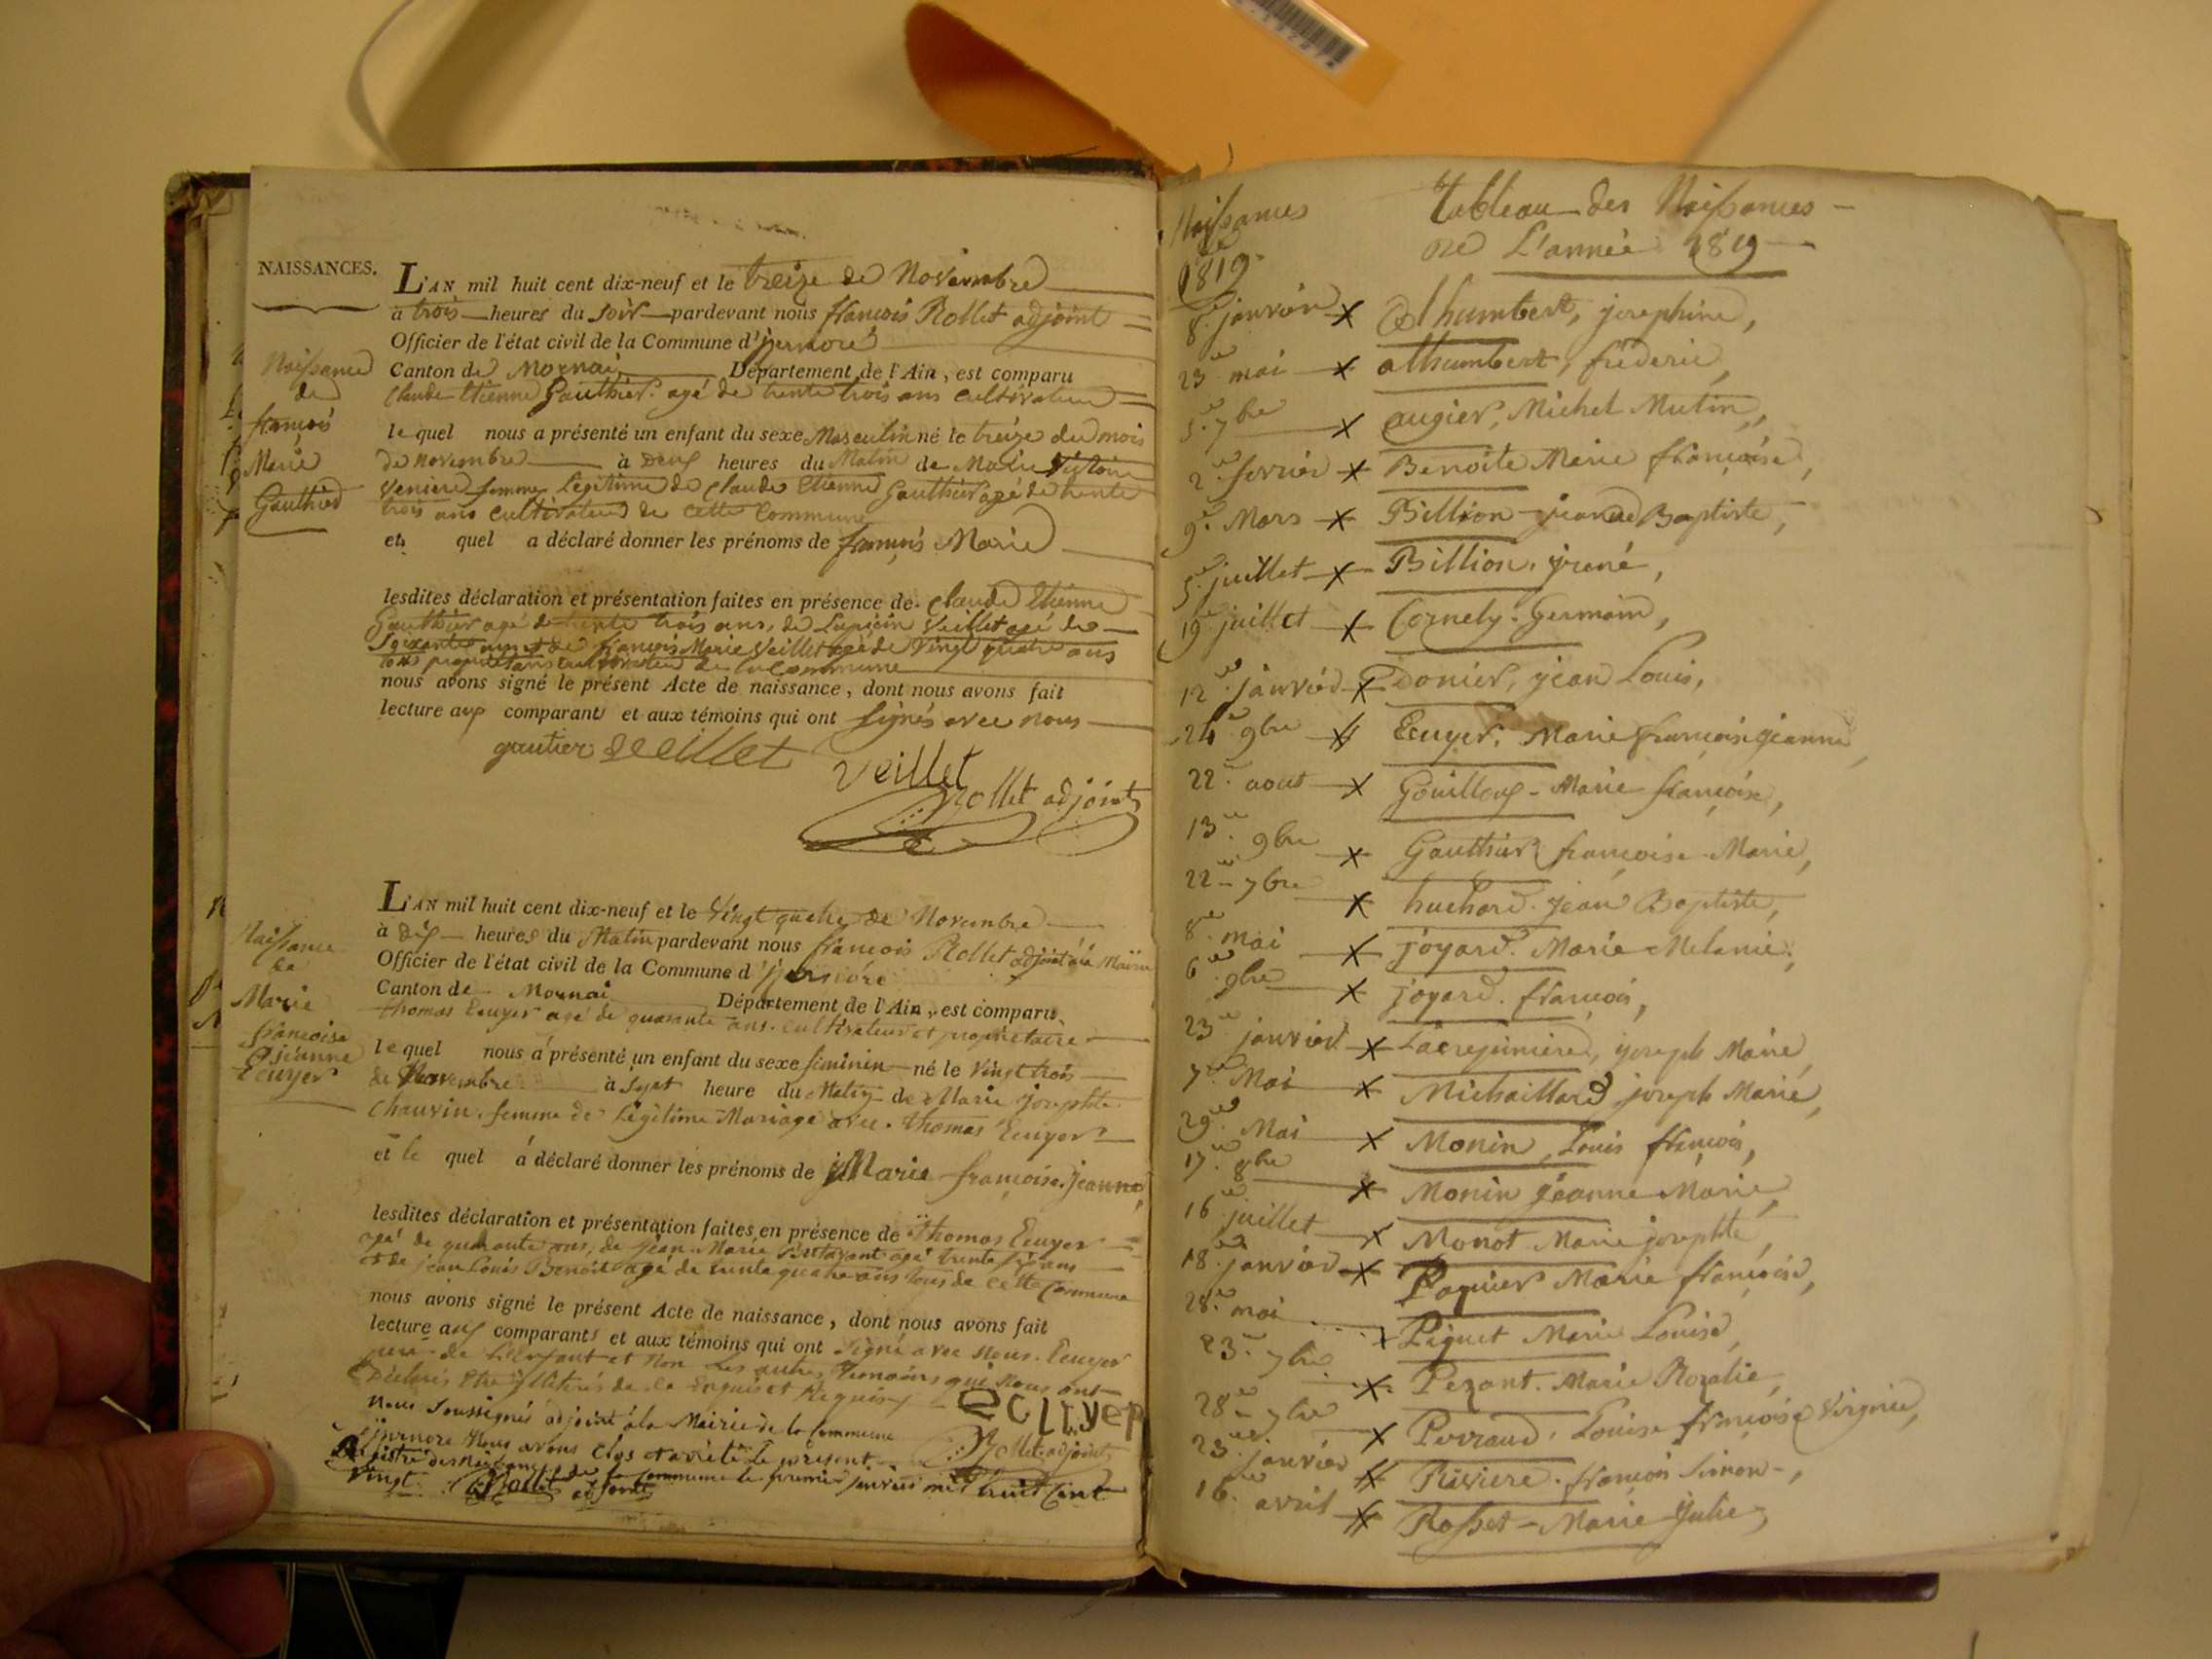 NAISSANCES.
Naissance
de
françois
Marie
Gauthier
L'AN mil huit cent dix-neuf et le treize de Novembre
à trois heures du soir pardevant nous françois Rollet adjoint
Officier de l'état civil de la Commune d'yzernore
Canton de Mornai Département de l'Ain, est comparu
Claude Etienne Gauthier agé de trente trois ans Cultivateur
le quel nous a présenté un enfant du sexe Masculin né le treize du mois
de novembre à deux heures du Matin de Marie
femme Légitime de Claude Etienne Gauthier agé de trente
trois ans Cultivateur de cette Commune
et quel a déclaré donner les prénoms de françois Marie
lesdites déclaration et présentation faites en présence de Claude Etienne
Gauthier agé de trente trois ans, de Veillet agé de
Soixante et de françois Marie Veillet agé de Vingt quatre ans
nous avons signé le présent Acte de naissance, dont nous avons fait
lecture aux comparants et aux témoins qui ont signés avec nous
gautier veillet
veillet
Rollet adjoint
Naissance
de
Marie
françoise
jeanne
Ecuyer
L'AN mil huit cent dix-neuf et le Vingt quatre de Novembre
à dix heures du Matin pardevant nous françois Rollet adjoint
Officier de l'état civil de la Commune d'yzernore
Canton de Mornai Département de l'Ain, est comparu
thomas Ecuyer agé de quarante ans. cultivateur et propriétaire
le quel nous a présenté un enfant du sexe féminin né le Vingt trois
de Novembre à Sept heure du Matin de Marie josephte
Chauvin. femme de Légitime Mariage avec thomas Ecuyer
et le quel á déclaré donner les prénoms de Marie françoise jeanne
lesdites déclaration et présentation faites en présence de thomas Ecuyer
agé de quarante ans, de jean Marie agé trente ans
et de jean Louis Benoit agé de trente quatre ans tous de cette Commune
nous avons signé le présent Acte de naissance, dont nous avons fait
lecture aux comparants et aux témoins qui ont signé avec nous. Ecuyer
pere de L'Enfant et non les autres temoins qui nous ont
Déclarés Etre de ce Enquis et Requis
ecuyer
Nous Soussignés adjoint à la Mairie de la Commune
Rollet adjoint
Nous avons Clos et arrêté le présent
Registre des Naissances de la Commune le premier janvier mil huit Cent
Vingt. Rollet adjoint
Naissances
de
1819
Tableau des Naissances
de L'année 1819
8. janvier x Alhumbert, josephine,
23 mai x alhumbert, fréderic,
5. 7bre x augier, Michel Mutin,
2. fevrier x Benoite Marie françoise,
9. Mars x Billion jean Baptiste,
5. juillet x Billion.
19 juillet x Cornely. Germain,
12. janvier x donier, jean Louis,
24 9bre x Ecuyer. Marie françoise jeanne,
22. aout x Gouilloux Marie françoise,
13. 9bre x Gauthier françoise Marie,
22 7bre x huchard. jean Baptiste,
8. mai x joyard. Marie Melanie,
6. 9bre x joyard. françois,
23 janvier x joseph Marie,
7. Mai x Michaillard joseph Marie,
29. Mai x Monin Louis françois,
17. 8bre x Monin jéanne Marie,
16 juillet x Monot Marie josephte,
18. janvier x Paquier Marie françoise,
28. mai x Piquet Marie Louise,
23. 7bre x Pezant. Marie Rozalie,
28 7bre x Perraud. Louise françoise Virginie,
23. janvier x Riviere. françois Simon,
16. avril x Rosset Marie Julie,